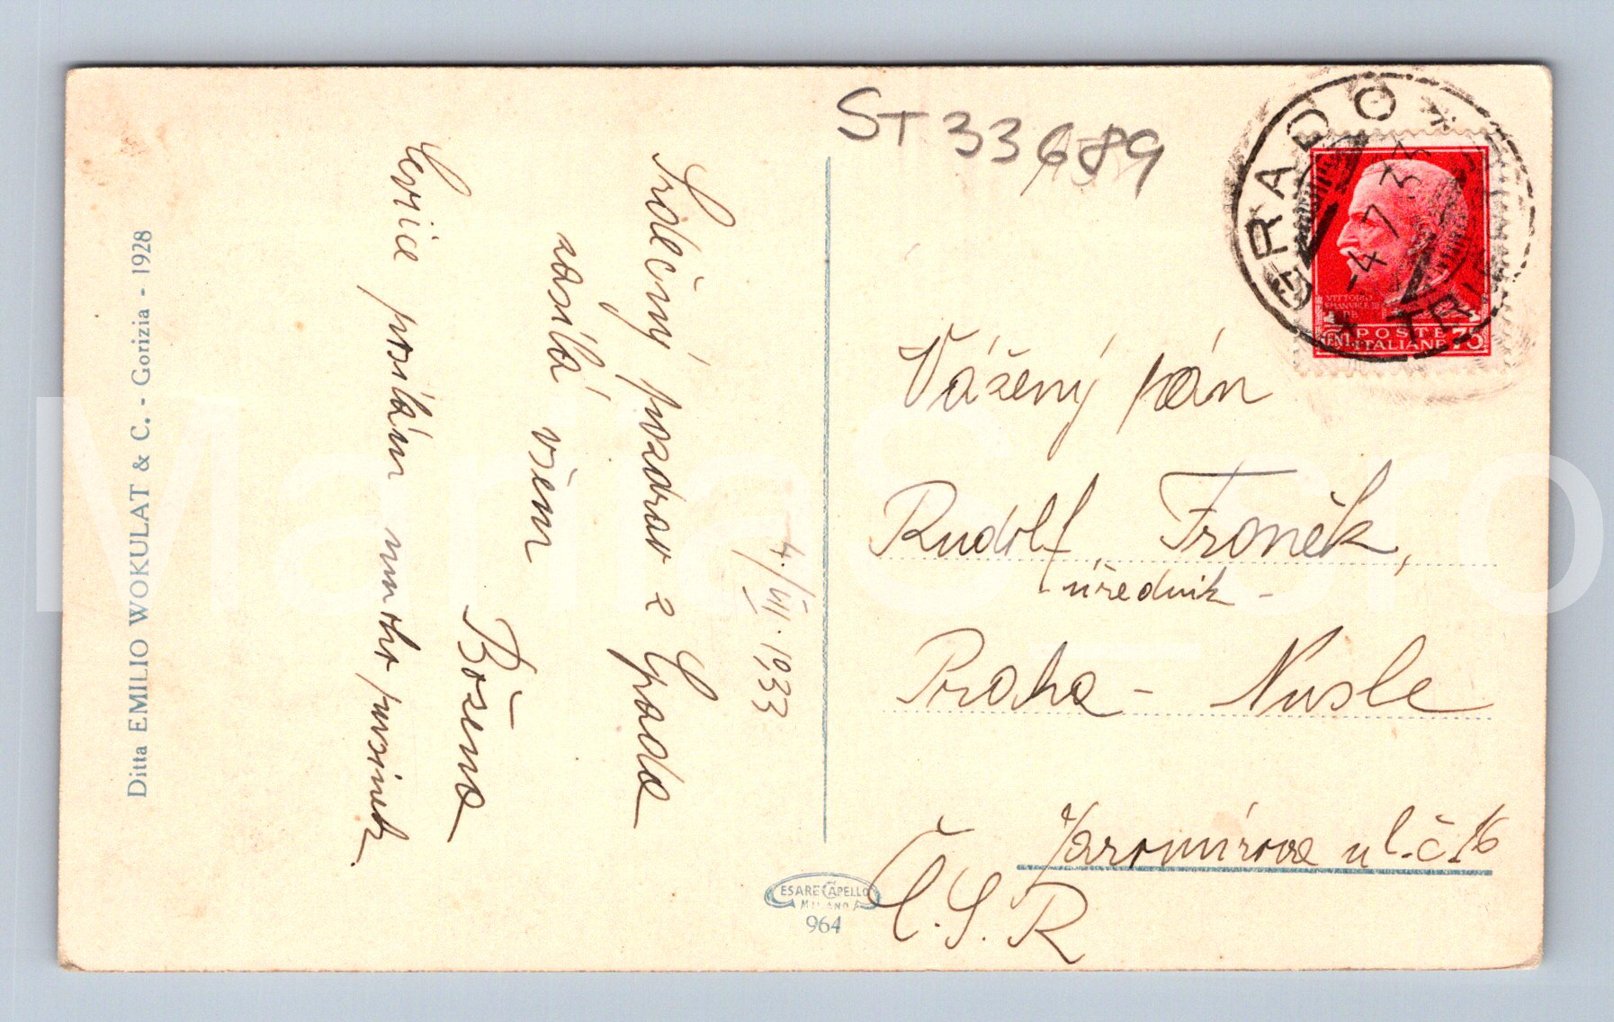 Ditta EMILIO WOKULAT & C. - Gorizia - 1928
4./VII. 1933
Srdečný pozdrav z Grada
zasílá všem
Božena
Levici posílám mnoho pusinek.
ESARE CAPELLO
MILANO
964
ST 33689
GRADO
4 7 33
VITTORIO
EMANUELE III
POSTE
CENT ITALIANE 75
Vážený pán
Rudolf Froněk,
úředník -
Praha - Nusle
Jaromírova ul. č. 16
Č.S.R